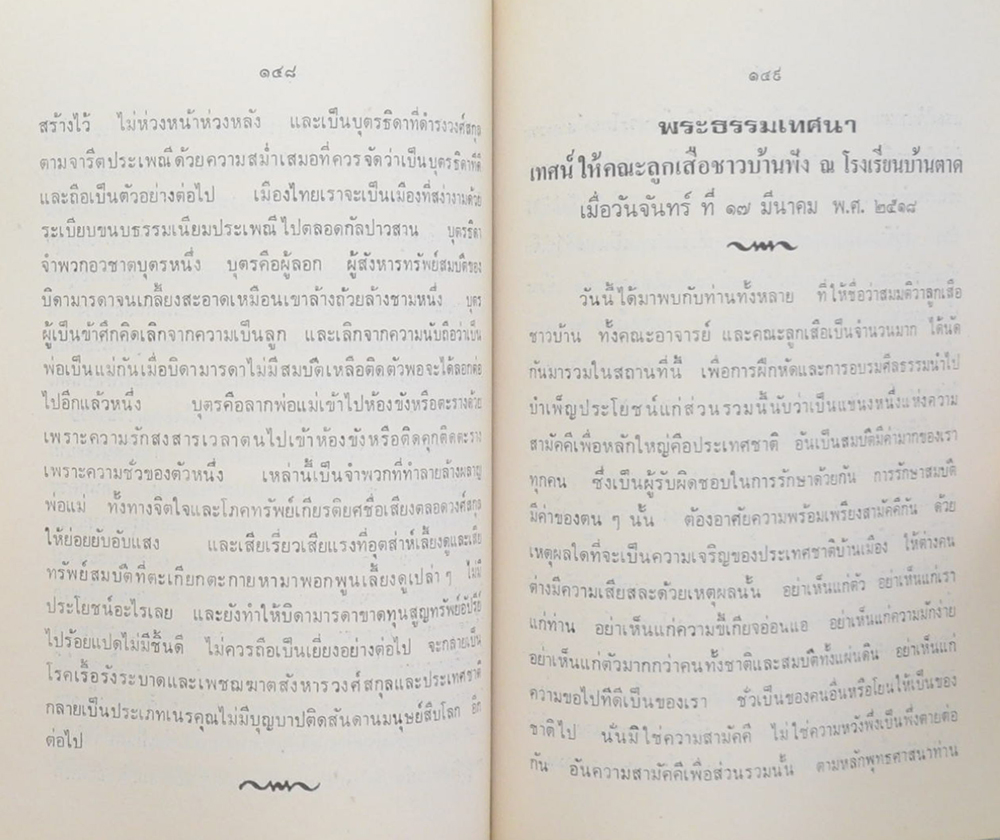 ๑๔๘
สร้างไว้ ไม่ห่วงหน้าห่วงหลัง และเป็นบุตรธิดาที่ดำรงวงศ์สกุล
ตามจารีตประเพณีด้วยความสม่ำเสมอที่ควรจัดว่าเป็นบุตรธิดาที่ดี
และถือเป็นตัวอย่างต่อไป เมืองไทยเราจะเป็นเมืองที่สง่างามด้วย
ระเบียบขนบธรรมเนียมประเพณีไปตลอดกัลปาวสาน บุตรธิดา
จำพวกอวชาตบุตรหนึ่ง บุตรคือผู้ลอก ผู้สังหารทรัพย์สมบัติของ
บิดามารดาจนเกลี้ยงสะอาดเหมือนเขาล้างถ้วยล้างชามหนึ่ง บุตร
ผู้เป็นข้าศึกคิดเลิกจากความเป็นลูก และเลิกจากความนับถือว่าเป็น
พ่อเป็นแม่กันเมื่อบิดามารดาไม่มีสมบัติเหลือติดตัวพอจะได้ลอกต่อ
ไปอีกแล้วหนึ่ง บุตรคือลากพ่อแม่เข้าไปห้องขังหรือตะรางด้วย
เพราะความรักสงสารเวลาตนไปเข้าห้องขังหรือติดคุกติดตะราง
เพราะความชั่วของตัวหนึ่ง เหล่านี้เป็นจำพวกที่ทำลายล้างผลาญ
พ่อแม่ ทั้งทางจิตใจและโภคทรัพย์เกียรติยศชื่อเสียงตลอดวงศ์สกุล
ให้ย่อยยับอับแสง และเสียเรี่ยวเสียแรงที่อุตส่าห์เลี้ยงดูและเสีย
ทรัพย์สมบัติที่ตะเกียกตะกายหามาพอกพูนเลี้ยงดูเปล่า ๆ ไม่มี
ประโยชน์อะไรเลย และยังทำให้บิดามารดาขาดทุนสูญทรัพย์อัปรีย์
ไปร้อยแปดไม่มีชิ้นดี ไม่ควรถือเป็นเยี่ยงอย่างต่อไป จะกลายเป็น
โรคเรื้อรังระบาดและเพชฌฆาตสังหารวงศ์สกุลและประเทศชาติ
กลายเป็นประเภทเนรคุณไม่มีบุญบาปติดสันดานมนุษย์สืบโลก อีก
ต่อไป
๑๔๙
พระธรรมเทศนา
เทศน์ ให้คณะลูกเสือชาวบ้านฟัง ณ โรงเรียนบ้านตาด
เมื่อวันจันทร์ ที่ ๑๗ มีนาคม พ.ศ. ๒๕๑๘
วันนี้ได้มาพบกับท่านทั้งหลาย ที่ให้ชื่อว่าสมมติว่าลูกเสือ
ชาวบ้าน ทั้งคณะอาจารย์ และคณะลูกเสือเป็นจำนวนมาก ได้นัด
กันมารวมในสถานที่นี้ เพื่อการฝึกหัดและการอบรมศีลธรรมนำไป
บำเพ็ญประโยชน์แก่ส่วนรวมนี้นับว่าเป็นแขนงหนึ่งแห่งความ
สามัคคีเพื่อหลักใหญ่คือประเทศชาติ อันเป็นสมบัติมีค่ามากของเรา
ทุกคน ซึ่งเป็นผู้รับผิดชอบในการรักษาด้วยกัน การรักษาสมบัติ
มีค่าของตน ๆ นั้น ต้องอาศัยความพร้อมเพรียงสามัคคีกัน ด้วย
เหตุผลใดที่จะเป็นความเจริญของประเทศชาติบ้านเมือง ให้ต่างคน
ต่างมีความเสียสละด้วยเหตุผลนั้น อย่าเห็นแก่ตัว อย่าเห็นแก่เรา
แก่ท่าน อย่าเห็นแก่ความขี้เกียจอ่อนแอ อย่าเห็นแก่ความมักง่าย
อย่าเห็นแก่ตัวมากกว่าคนทั้งชาติและสมบัติทั้งแผ่นดิน อย่าเห็นแก่
ความขอไปทีดีเป็นของเรา ชั่วเป็นของคนอื่นหรือโยนให้เป็นของ
ชาติไป นั่นมิใช่ความสามัคคี ไม่ใช่ความหวังพึ่งเป็นพึ่งตายต่อ
กัน อันความสามัคคีเพื่อส่วนรวมนั้น ตามหลักพุทธศาสนาท่าน